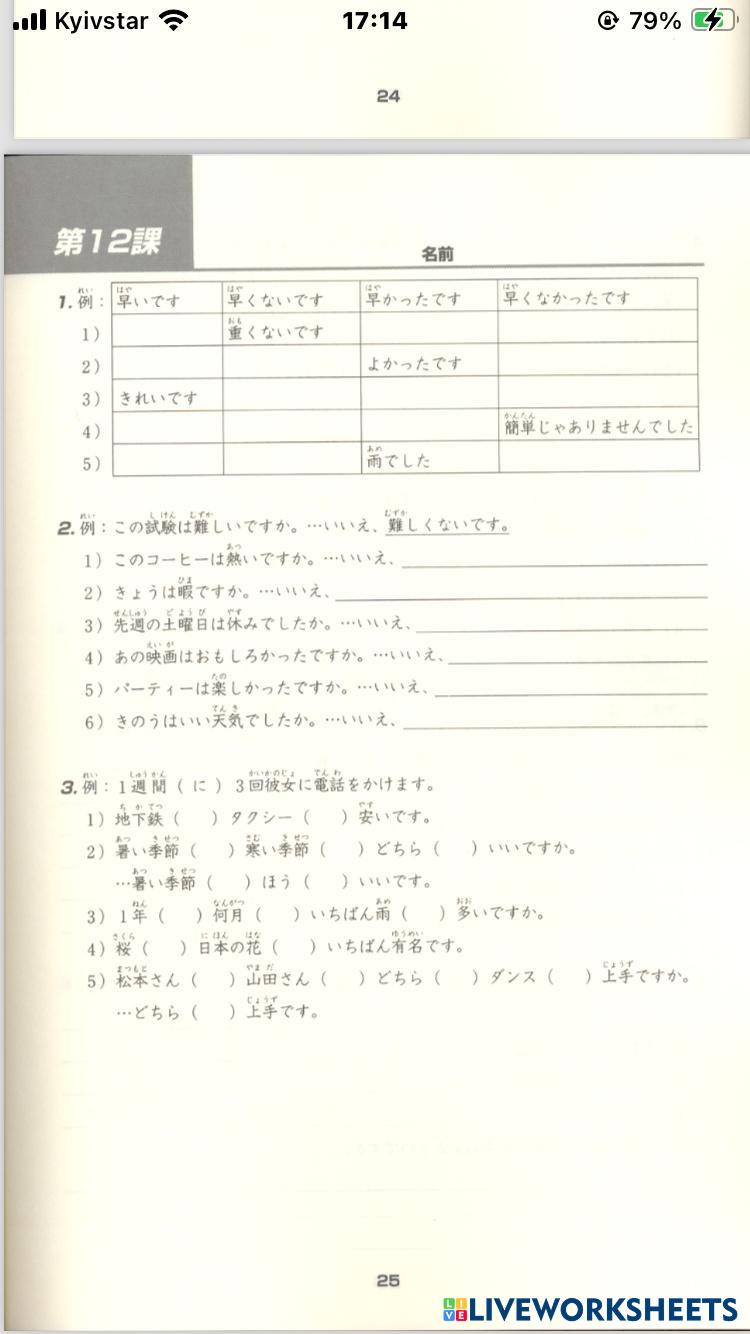 Kyivstar 17:14 79%
24
第12課
名前
1. 例： 早いです 早くないです 早かったです 早くなかったです
1） 重くないです
2） よかったです
3） きれいです
4） 簡単じゃありませんでした
5） 雨でした
2. 例：この試験は難しいですか。…いいえ、難しくないです。
1）このコーヒーは熱いですか。…いいえ、
2）きょうは暇ですか。…いいえ、
3）先週の土曜日は休みでしたか。…いいえ、
4）あの映画はおもしろかったですか。…いいえ、
5）パーティーは楽しかったですか。…いいえ、
6）きのうはいい天気でしたか。…いいえ、
3. 例：1週間（に）3回彼女に電話をかけます。
1）地下鉄（　）タクシー（　）安いです。
2）暑い季節（　）寒い季節（　）どちら（　）いいですか。
…暑い季節（　）ほう（　）いいです。
3）1年（　）何月（　）いちばん雨（　）多いですか。
4）桜（　）日本の花（　）いちばん有名です。
5）松本さん（　）山田さん（　）どちら（　）ダンス（　）上手ですか。
…どちら（　）上手です。
25
LIVEWORKSHEETS